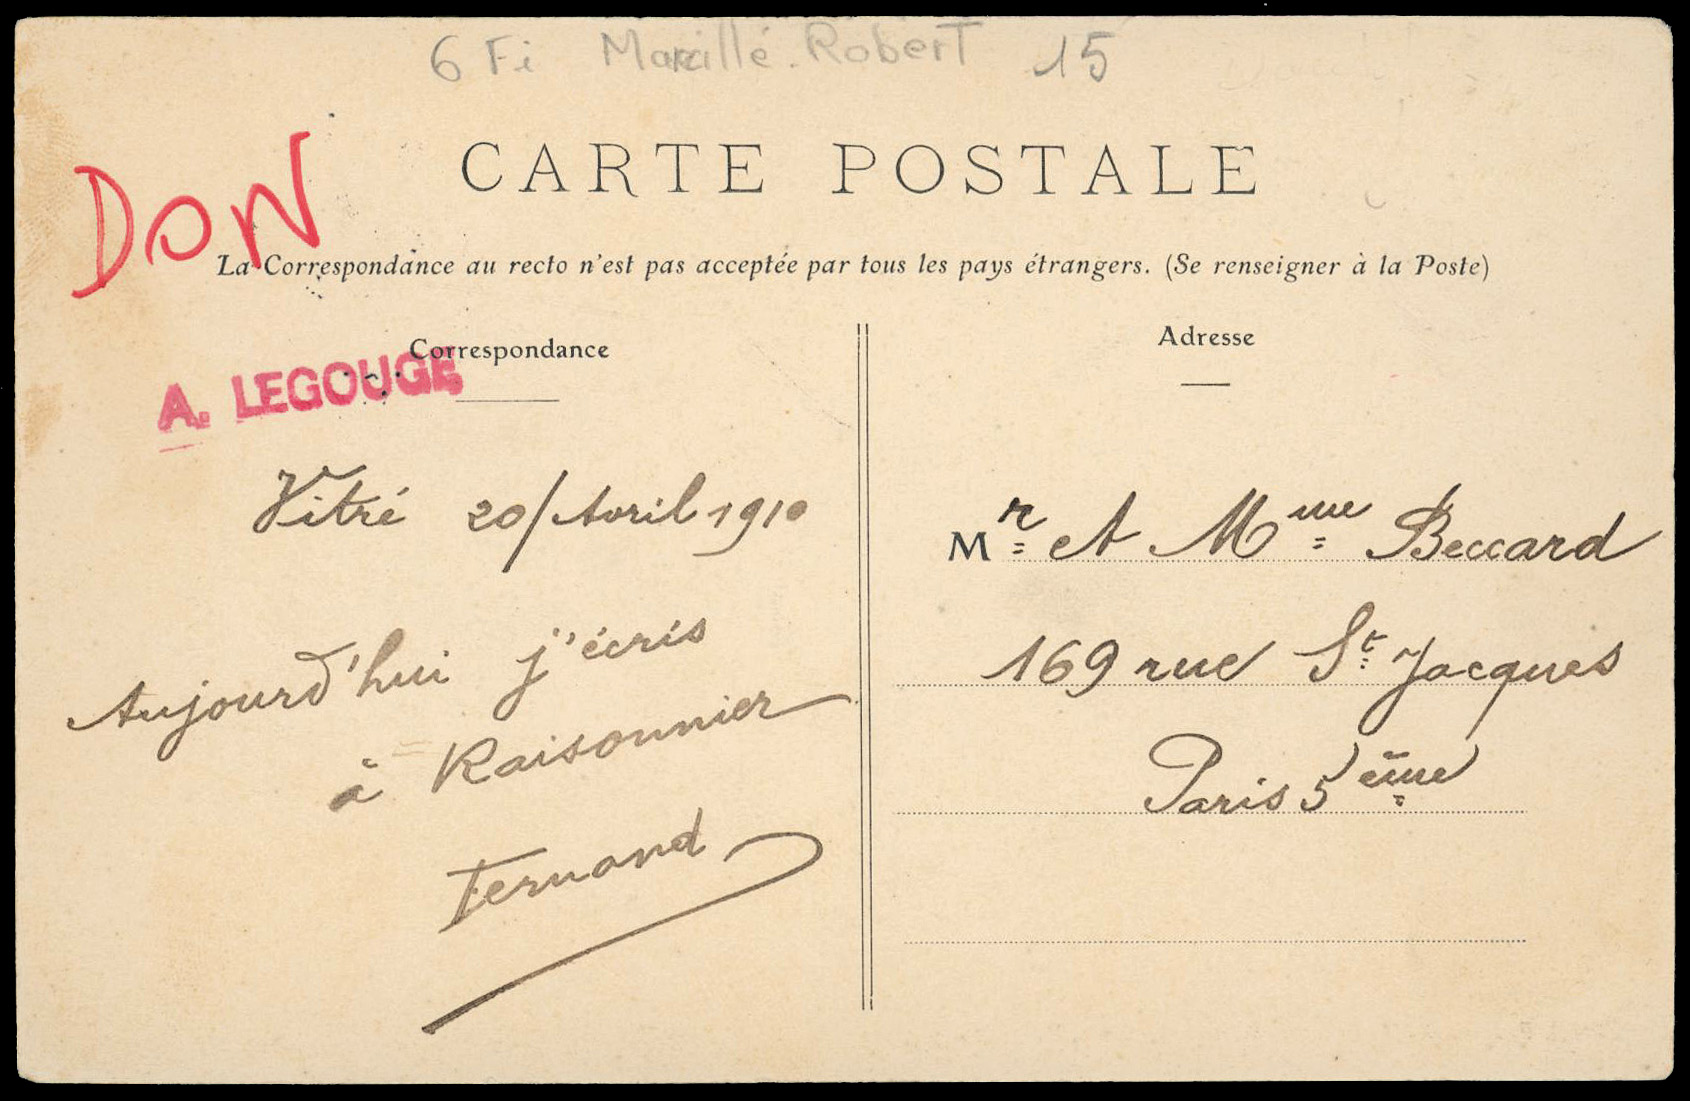 6 Fi Marcillé-Robert 15
CARTE POSTALE
DON
La Correspondance au recto n'est pas acceptée par tous les pays étrangers. (Se renseigner à la Poste)
Correspondance
A. LEGOUGE
Vitré 20/Avril 1910
Aujourd'hui j'écris
à Raisonnier
Fernand
Adresse
Mr et Mme Beccard
169 rue St Jacques
Paris 5ème